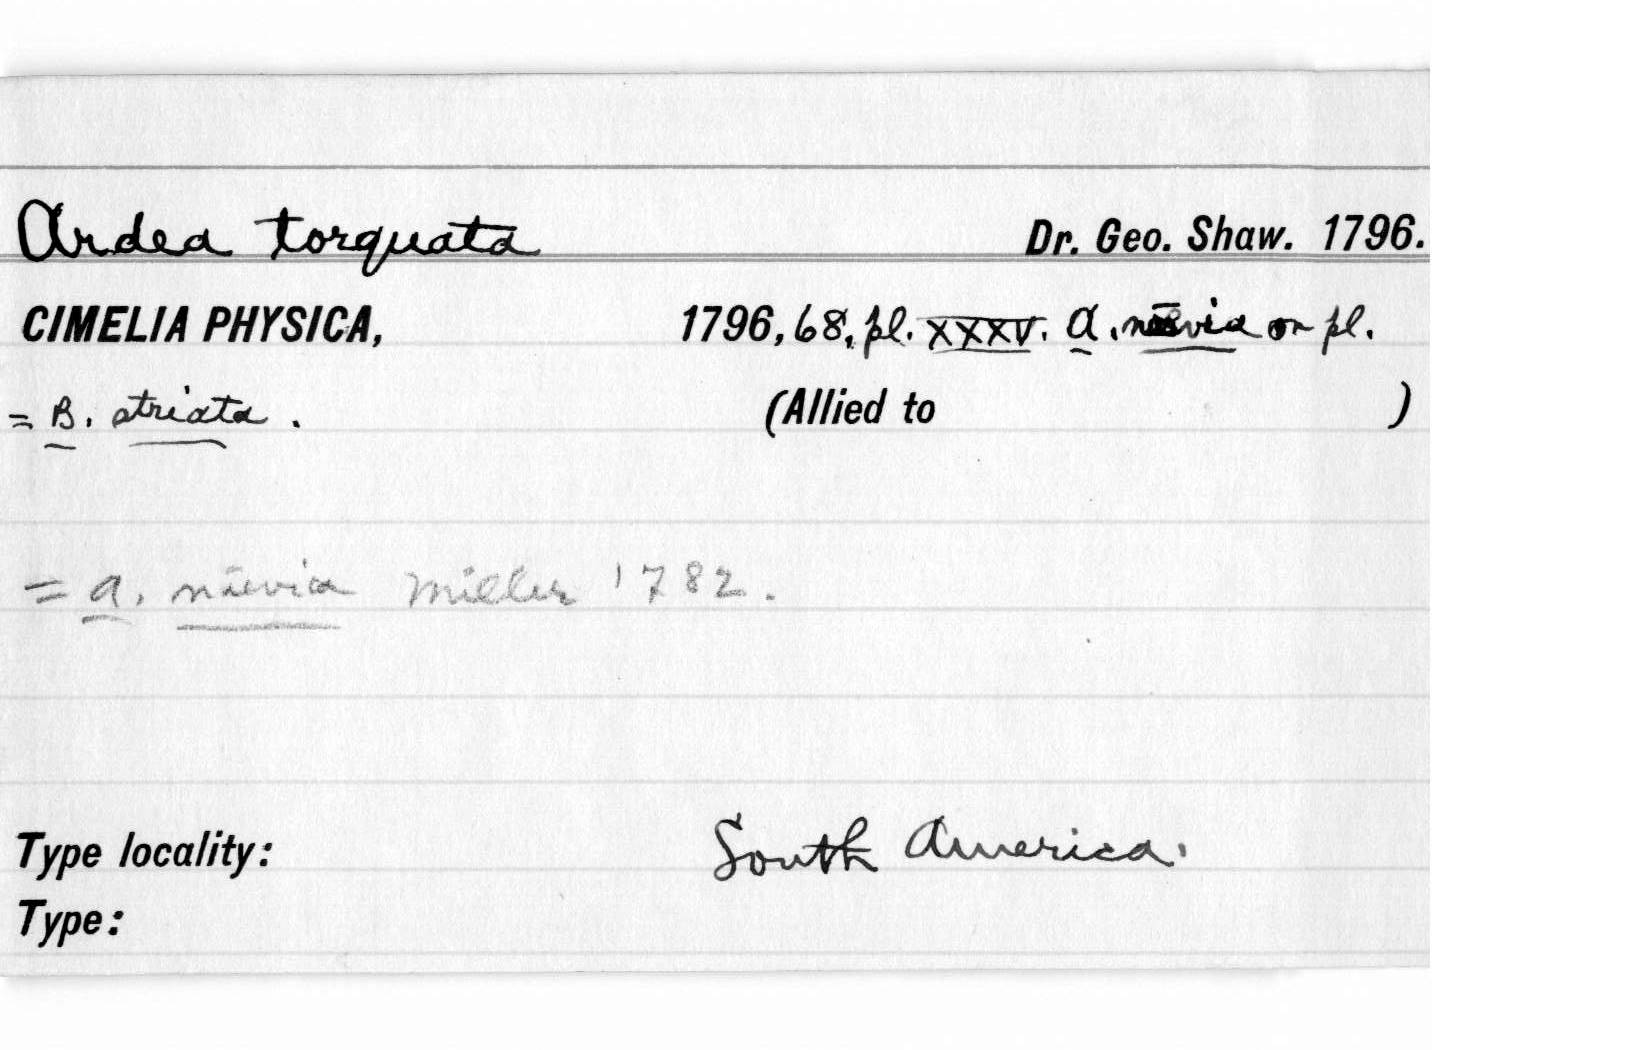 Ardea torquata Dr. Geo. Shaw. 1796.
CIMELIA PHYSICA, 1796, 68, pl. XXXV. A. nævia on pl.
= B. striata. (Allied to )
= A. nævia Miller 1782.
Type locality: South America.
Type: